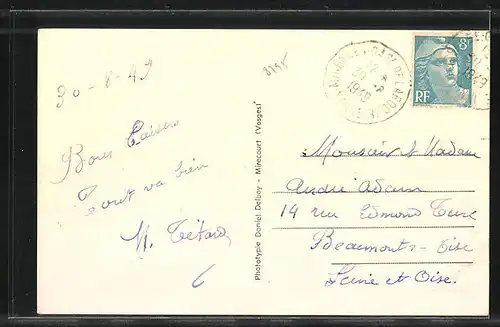 30-8-49
3/95
Bons Baisers
Tout va bien
M. Tétard
Phototypie Daniel Delboy - Mirecourt (Vosges)
1949
8F
RF
Monsieur et Madame
André Adam
14 rue Edmond Turc
Beaumont s- Oise
Seine et Oise.